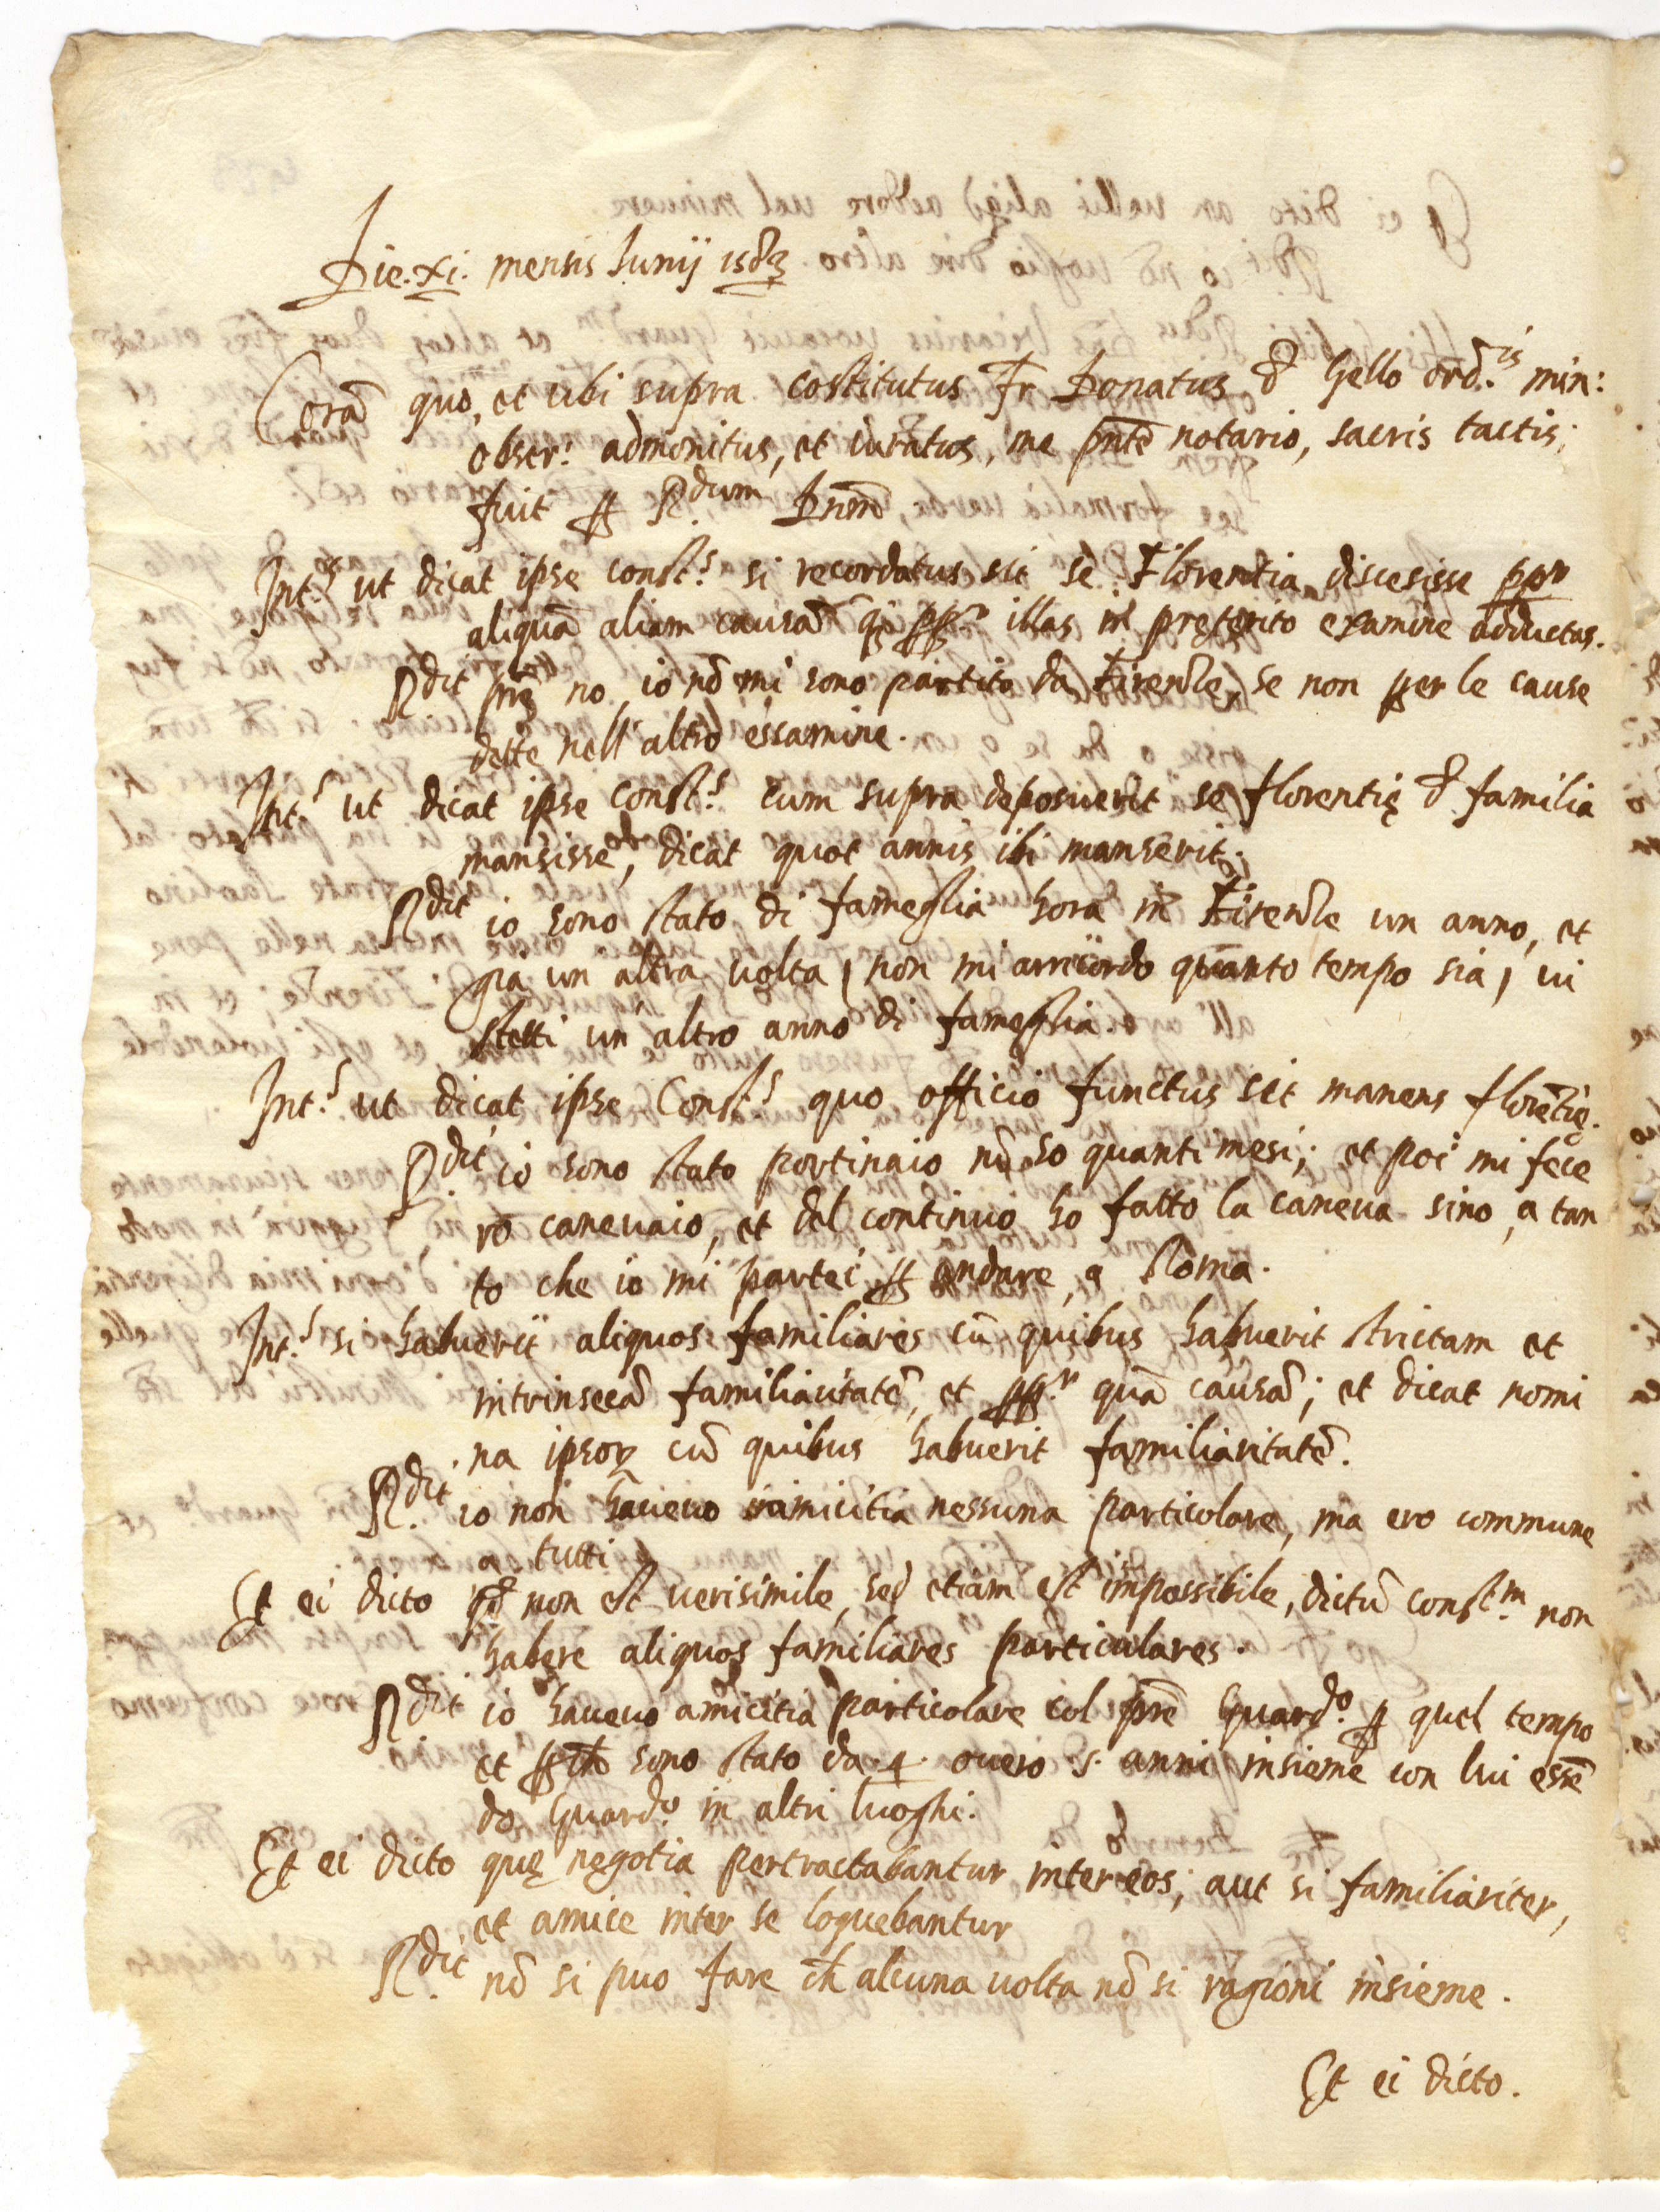 Die .xi. mensis Junij 1583
Corā quo, et ubi supra costitutus Fr Donatus d Gello ord.is min:
obser.! admonitus, et iuratus, me pnte notario, sacris tactis;
fuit p R.dum Dnm
Int.s ut dicat ipse const.s si recordatus sit se Florentia discesisse ppr
aliquā aliam causā q̃ ppr illas in pręterito examine adductas.
R.dit no, io nō mi sono partito da Firenze, se non per le cause
dette nell altro essamine.
Int.s ut dicat ipse const.s cum supra deposuerit se florentię d familia
mansisse, dicat quot annis ibi manserit.
R.dit io sono stato di fameglia hora in Firenze un anno, et
gia un altra uolta ( non mi arricordo quanto tempo sia ) ui
stetti un altro anno di fameglia.
Int.s ut dicat ipse Const.s quo officio functus sit manens florētię.
R.dit io sono stato portinaio nō so quanti mesi; et poi mi fece
ro caneuaio, et del continuo ho fatto la caneua sino, a tan
to che io mi partei p andare, a Roma.
Int.s si habuerit aliquos familiares cū quibus habuerit strictam et
intrinsecā familiaritatē, et ppr quā causā; et dicat nomi
na ipsoꝝ cū quibus habuerit familiaritatē.
R.dit io non haueuo inimicitia nessuna particolare, ma ero commune
a tutti
Et ei dicto non est uerisimile, sed etiam est impossibile, dictū const.m non
habere aliquos familiares particulares.
R.dit io haueuo amicitia particolare col pre Guard.o p quel tempo
et p ch sono stato da .4. ouero 5. anni insieme con lui essē
do Guard.o in altri luoghi.
Et ei dicto quę negotia pertractabantur inter eos; aut si familiariter,
et amice inter se loquebantur
R.dit nō si puo fare ch alcuna uolta nō si ragioni insieme.
Et ei dicto.